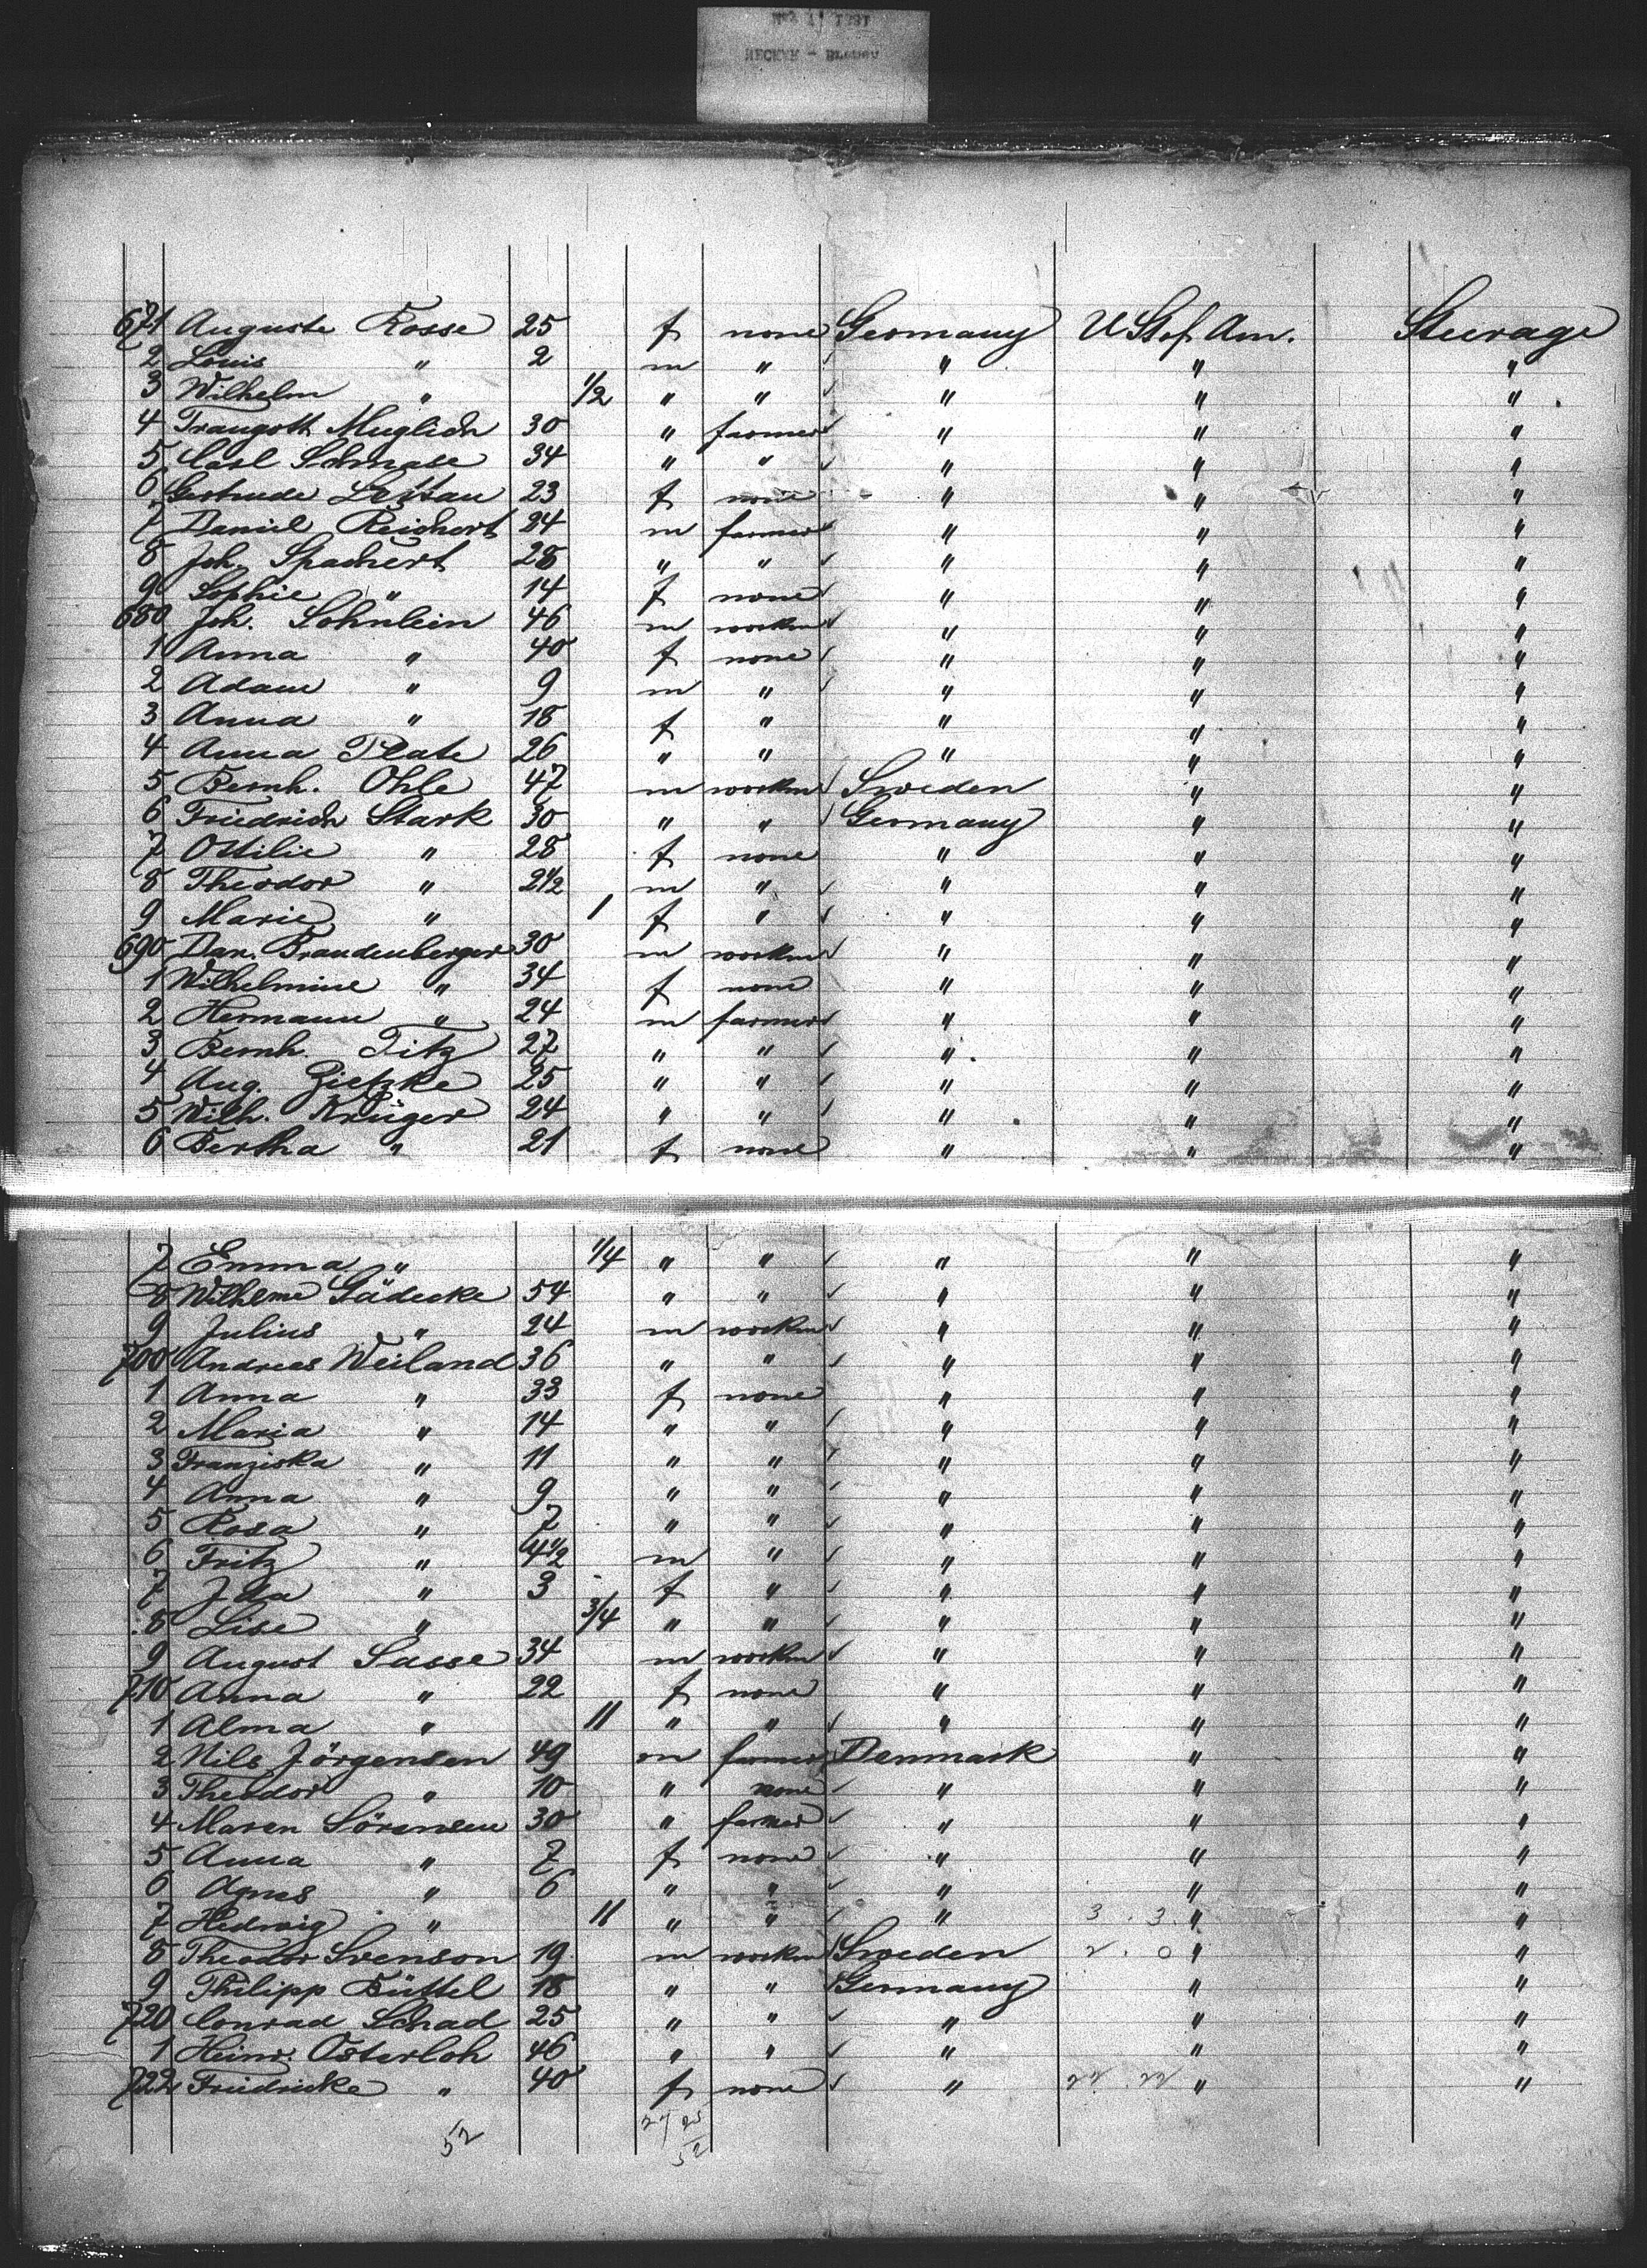 671 Auguste Rosse 25 f none Germany U St of Am. Steerage
2 Louis " 2 m " " " "
3 Wilhelm " 1/2 " " " " "
4 Traugott Muglich 30 " farmer " " "
5 Carl Schmase 34 " " " " "
6 Gertrude 23 f none " " "
7 Daniel Reichert 24 m farmer " " "
8 Joh. Spachert 28 " " " " "
9 Sophie " 14 f none " " "
680 Joh. Sohnlein 46 m workm " " "
1 Anna " 40 f none " " "
2 Adam " 9 m " " " "
3 Anna " 18 f " " " "
4 Anna Plate 26 " " " " "
5 Bernh. Ohle 47 m workm Sweden " "
6 Friedrich Stark 30 " " Germany " "
7 Ottilie " 28 f none " " "
8 Theodor " 2 1/2 m " " " "
9 Marie " 1 f " " " "
690 Dan. Brandenberger 30 m workm " " "
1 Wilhelmine " 34 f none " " "
2 Hermann " 24 m farmer " " "
3 Bernh. Titz 27 " " " " "
4 Aug. Zietzke 25 " " " " "
5 Wilh. Krüger 24 " " " " "
6 Bertha " 21 f none " " "
7 Emma " 1/4 " " " " "
8 Wilhlme Gädecke 54 " " " " "
9 Julius " 24 m workm " " "
700 Andreas Weiland 36 " " " " "
1 Anna " 33 f none " " "
2 Maria " 14 " " " " "
3 Franziska " 11 " " " " "
4 Anna " 9 " " " " "
5 Rosa " 7 " " " " "
6 Fritz " 4 1/2 m " " " "
7 Ida " 3 f " " " "
8 Lise " 3/4 " " " " "
9 August Sasse 34 m workm " " "
710 Anna " 22 f none " " "
1 Alma " 11 " " " " "
2 Nils Jörgensen 49 m farmer Denmark " "
3 Theodor " 10 " none " " "
4 Maren Sörensen 30 " farmer " " "
5 Anna " 7 f none " " "
6 Agnes " 6 " " " " "
7 Hedwig " 11 " " " 3 . 3 " "
8 Theodor Svenson 19 m workm Sweden 2 . 0 " "
9 Philipp Büttel 18 " " Germany " "
720 Conrad Schad 25 " " " " "
1 Heinr. Osterloh 46 " " " " "
722 Friedricke " 40 f none " 22 . 22 " "
52 27 25
52